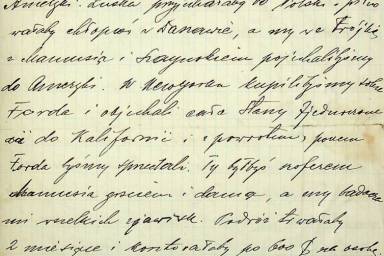 Ameryki. Luśka przyjechałaby do Polski i piło
wałaby chłopców w Danowie, a my we trójkę
z Mamusią i Szczytkiem pojechalibyśmy
do Ameryki. W Newyorku kupilibyśmy sobie
Forda i objechali całe Stany Zjednoczone
aż do Kalifornii i powrotem, poczem
Forda byśmy sprzedali. Ty byłbyś szoferem
Mamusia gościem i damą, a my badacza
mi wielkich zjawisk. Podróż trwałaby
2 miesiące i kosztowałaby po 600 $ na osobę